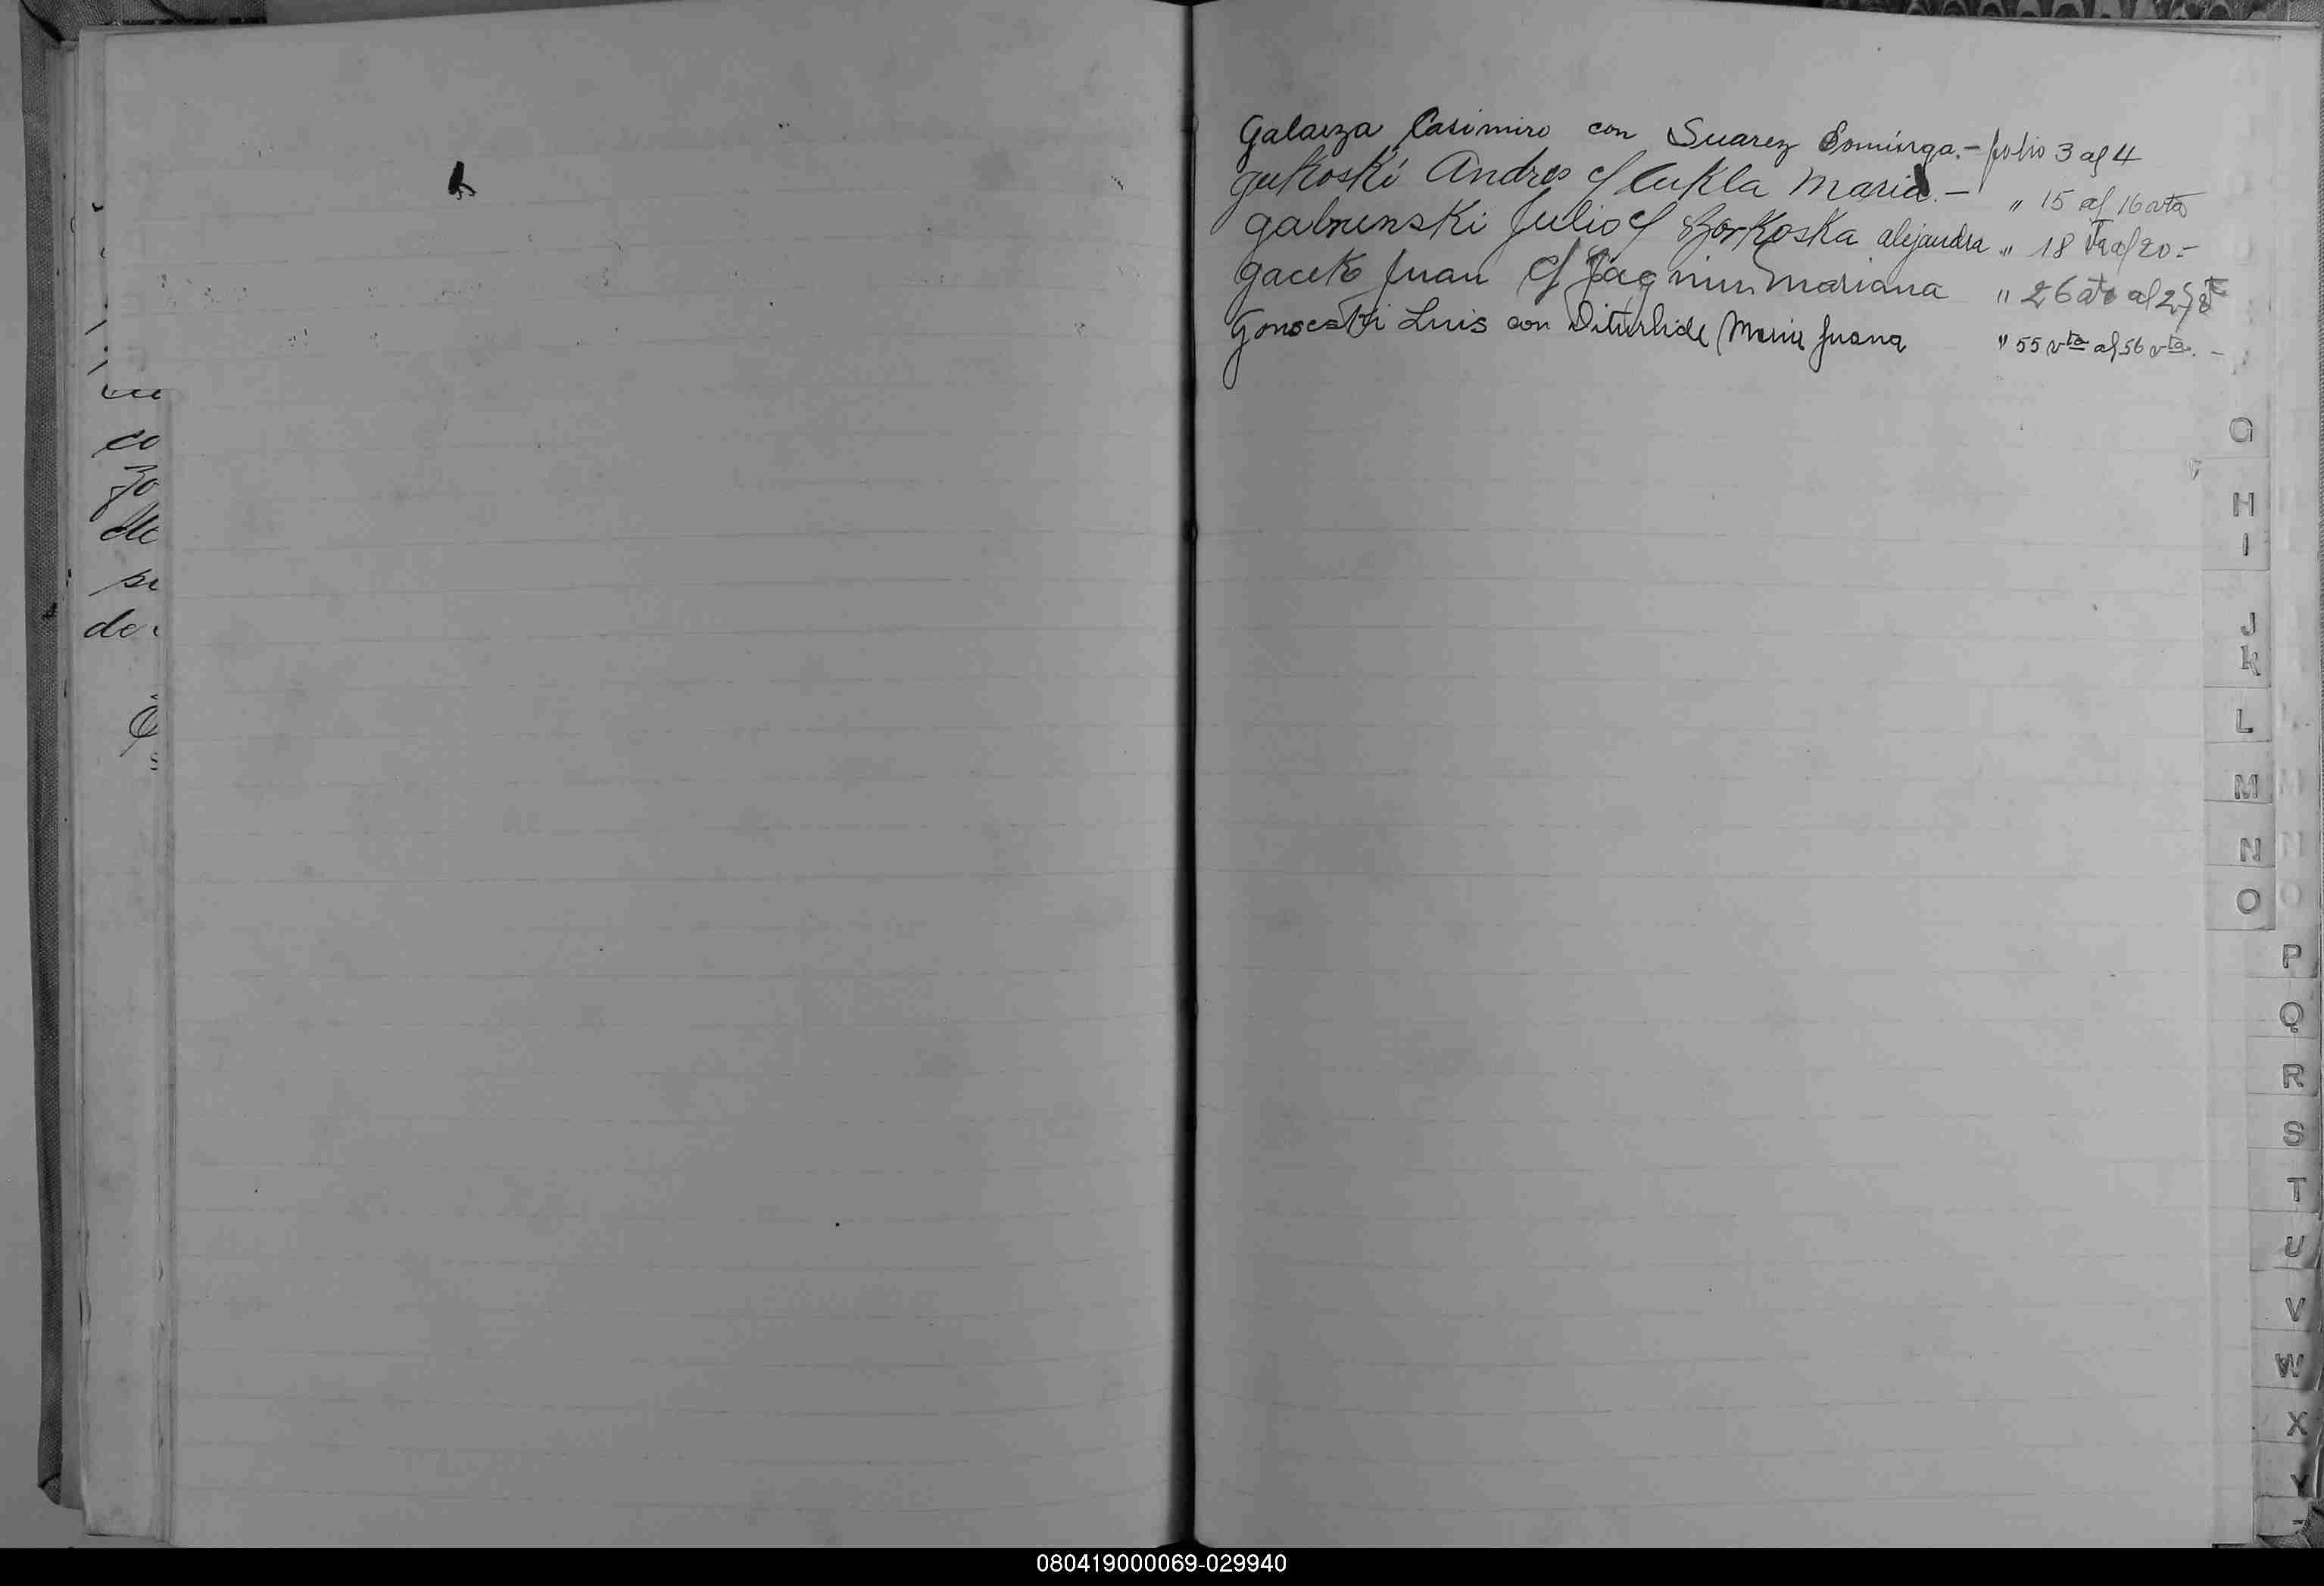 co
de
Galarza Casimiro con Suarez Dominga.- folio 3 al 4
Gutkoski Andres c/ Cukla Maria.- " 15 al 16 vta
Gabrunski Julio c/ Borkoska alejandra " 18 Vta al 20-
Gacek Juan c/ Mariana " 26 vta al
Gonoeski Luis con Diturbide Maria Juana " 55 vta al 56 vta. -
G
H
I
J
K
L
M
N
O
P
Q
R
S
T
U
V
W
X
Y
080419000069-029940